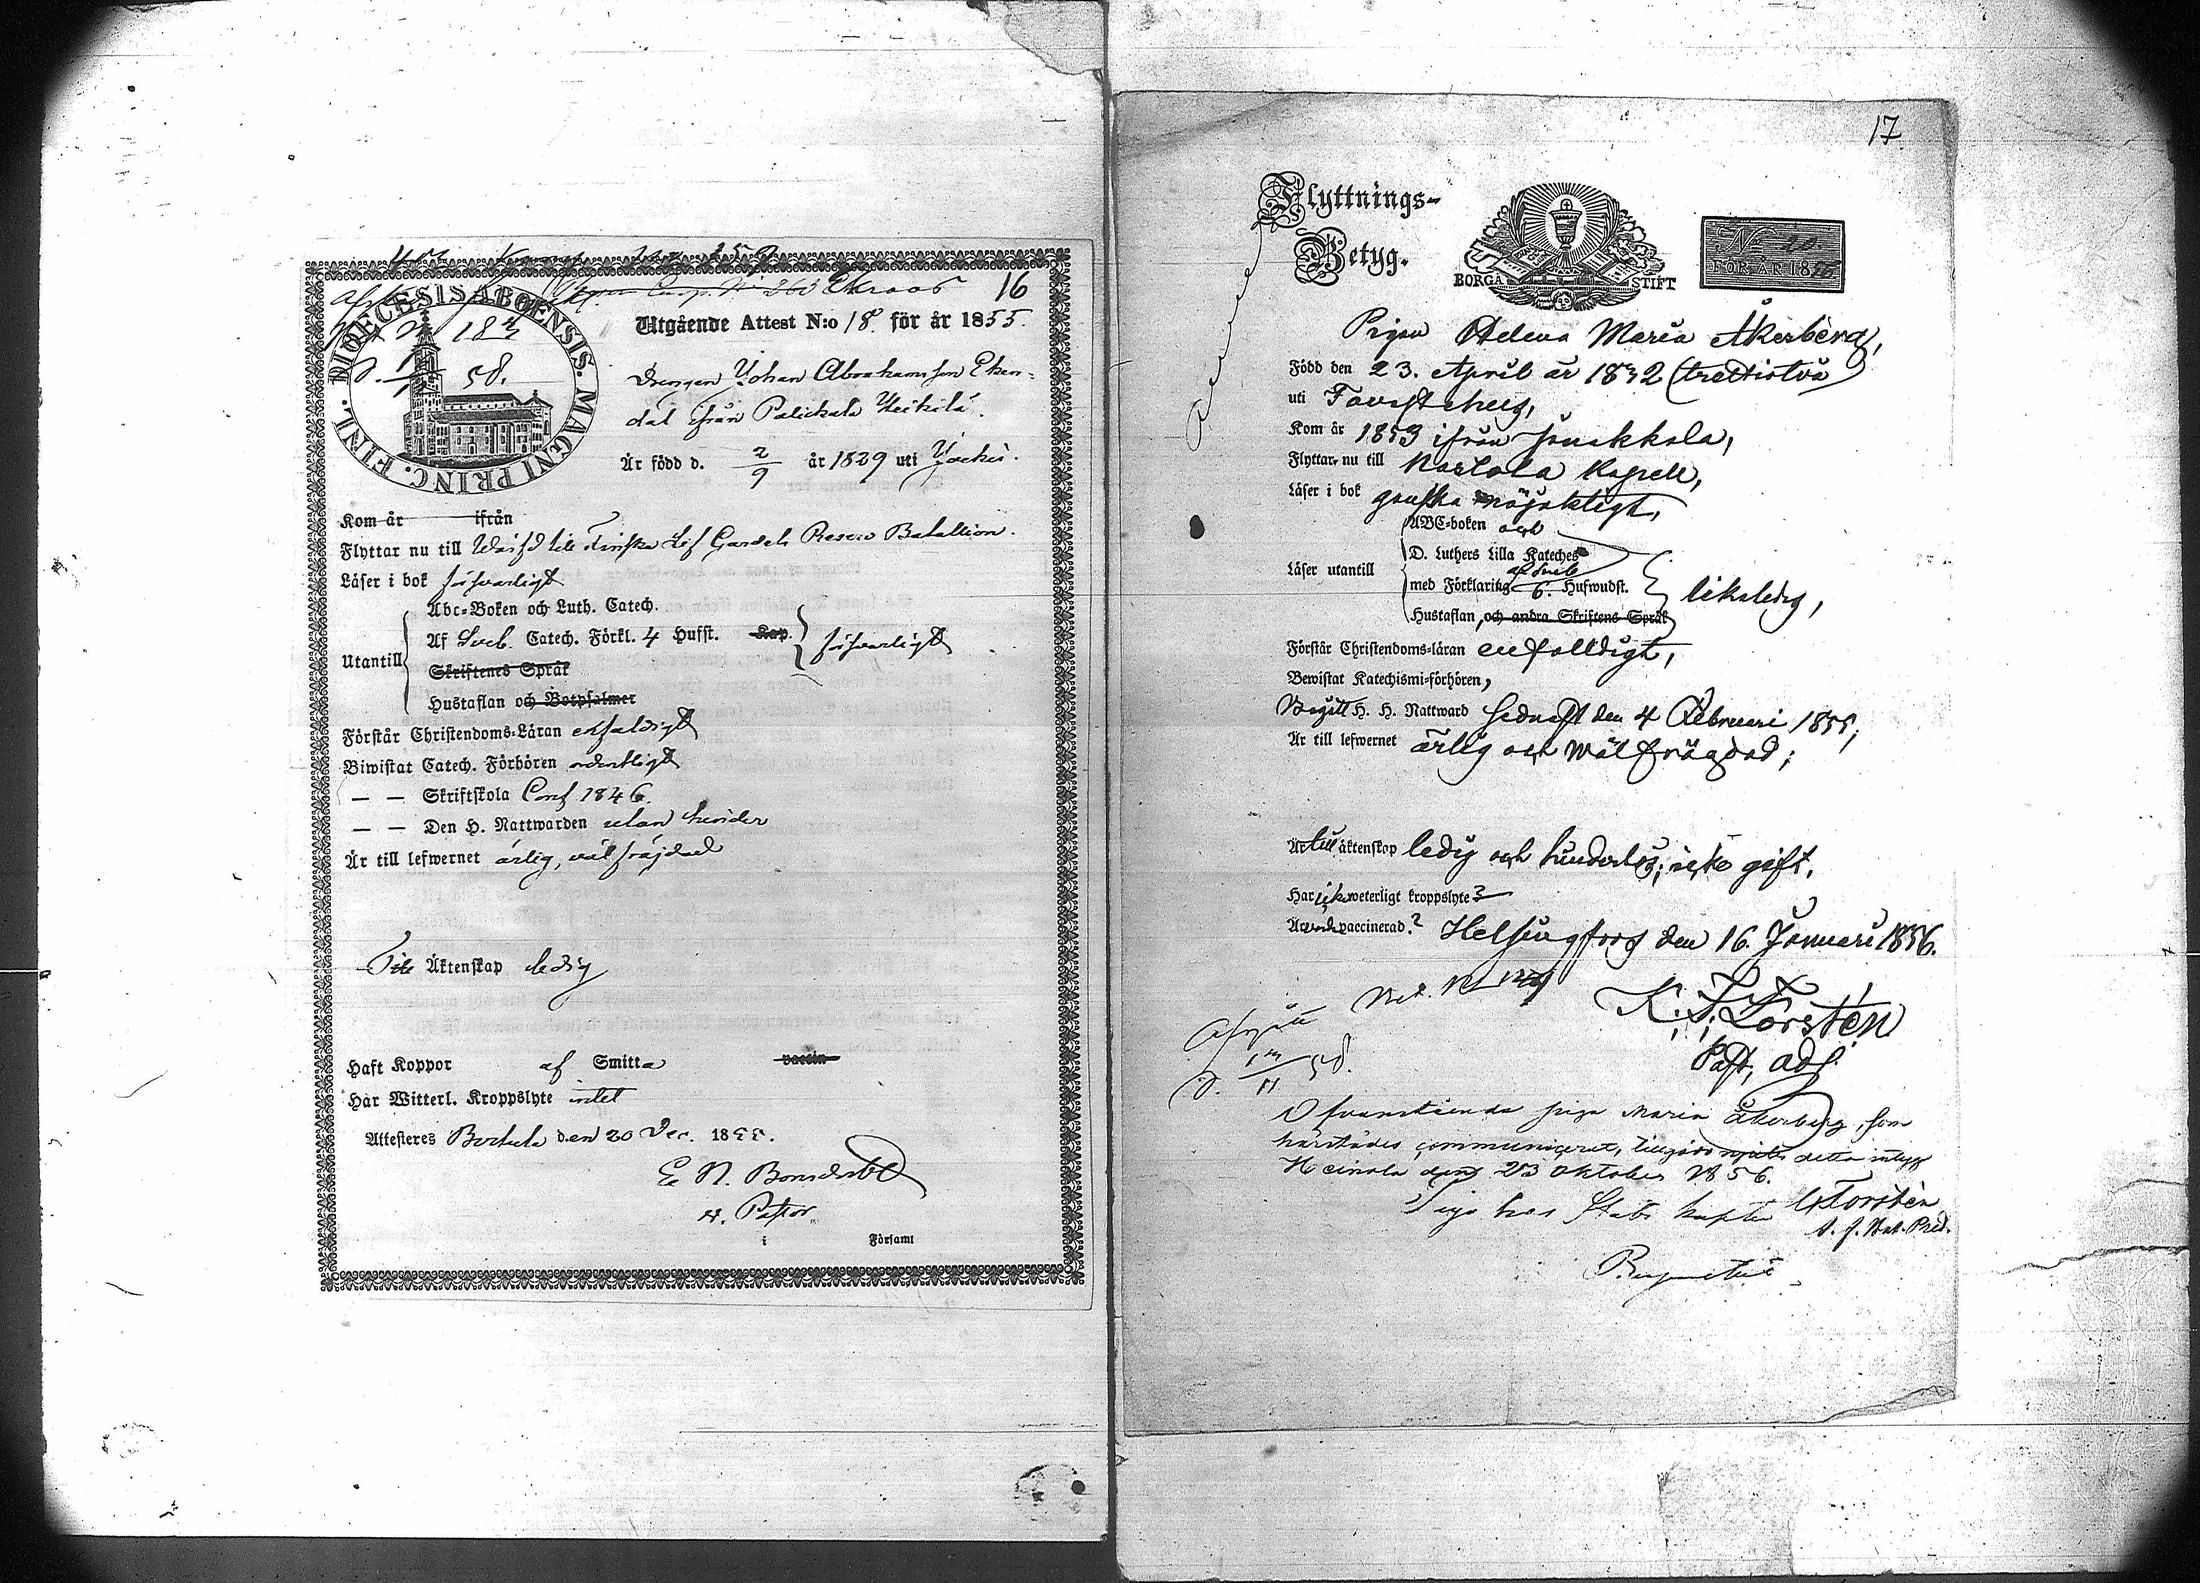 16
DIOECESIS ABOENSIS. MAGNI PRINC. FINL.
Utgående Attest N:o 18. för år 1855.
Drengen Johan Abrahamsson Eken-
dal ifrån Palickala Heikilä.
Är född d. 2/9 år 1829 uti Jockis.
Kom år ifrån
Flyttar nu till Wärfd till Finska Lif Gardets Reserv Batallion.
Läser i bok försvarligt
Abc-Boken och Luth. Catech.
Utantill Af Sveb. Catech. Förkl. 4 Hufst. Kap. försvarligt
Skriftenes Språk
Hustaflan och Botpsalmer
Förstår Christendoms-Läran enfaldigt
Biwistat Catech. Förhören ordentligt
— — Skriftskola Conf 1846.
— — Den H. Nattwarden utan hinder
Är till lefwernet ärlig, väl fräjdad
Till Äktenskap ledig
Haft Koppor af Smitta vaccin
Har Witterl. Kroppslyte intet
Attesteres den 20 Dec. 1855.
E. N. Bonsdorff
Pastor
i Församl
17
Flyttnings-
Betyg.
BORGA STIFT
No 20
FÖR ÅR 1856
Pigan Helena Maria Åkerberg,
Född den 23. April år 1832 (trettiotvå)
uti Tavastehus,
Kom år 1853 ifrån Janakkala,
Flyttar nu till Nastola Kapell,
Läser i bok ganska nöjaktigt,
ABC-boken och
D. Luthers Lilla Kateches
Läser utantill med Förklaring af Sveb. 6. Hufwudst. likaledes,
Hustaflan, och andra Skriftens Språk
Förstår Christendoms-läran enfaldigt,
Bewistat Katechismi-förhören,
Begått H. H. Nattward sednast den 4 Februari 1855,
Är till lefwernet ärlig och wäl frägdad;
Är till äktenskap ledig och hinderlös; icke gift.
Har icke weterligt kroppslyte?
Är vaccinerad? Helsingfors den 16. Januari 1856.
K. F. Forstén
Past. adj.
Afgått
d. 11 58.
Ofvanstående piga Maria Åkerberg, som
härstädes communicerat,
Heinola den 23 Oktober 1856.
Piga hos Stabs kapten
Forstén